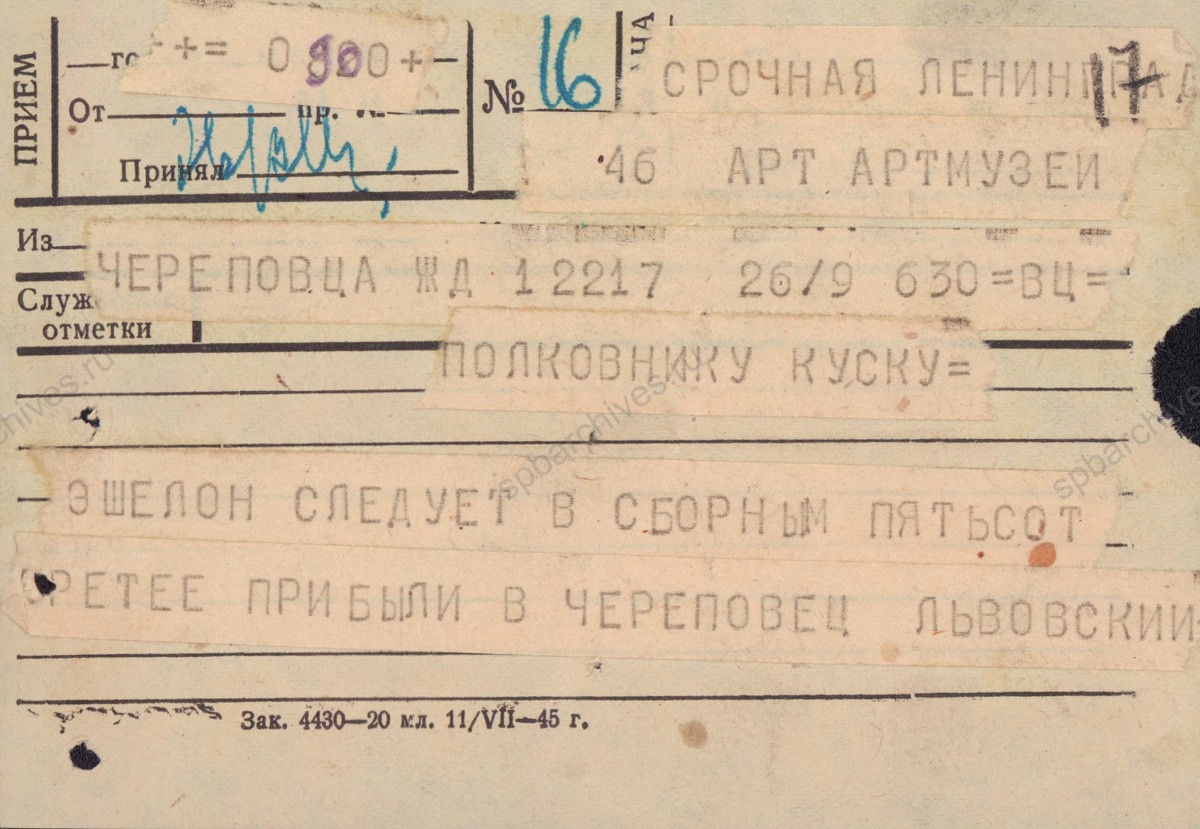 ПРИЕМ
++= 0900+
От
пр. №
Принял
№ 16
ЧА
17
СРОЧНАЯ ЛЕНИНГРАД
46 АРТ АРТМУЗЕЙ
Из
ЧЕРЕПОВЦА ЖД 12217 26/9 630=ВЦ=
Служ
отметки
ПОЛКОВНИКУ КУСКУ=
ЭШЕЛОН СЛЕДУЕТ В СБОРНЫМ ПЯТЬСОТ
ТРЕТЕЕ ПРИБЫЛИ В ЧЕРЕПОВЕЦ ЛЬВОВСКИЙ=
Зак. 4430—20 мл. 11/VII—45 г.
spbarchives.ru